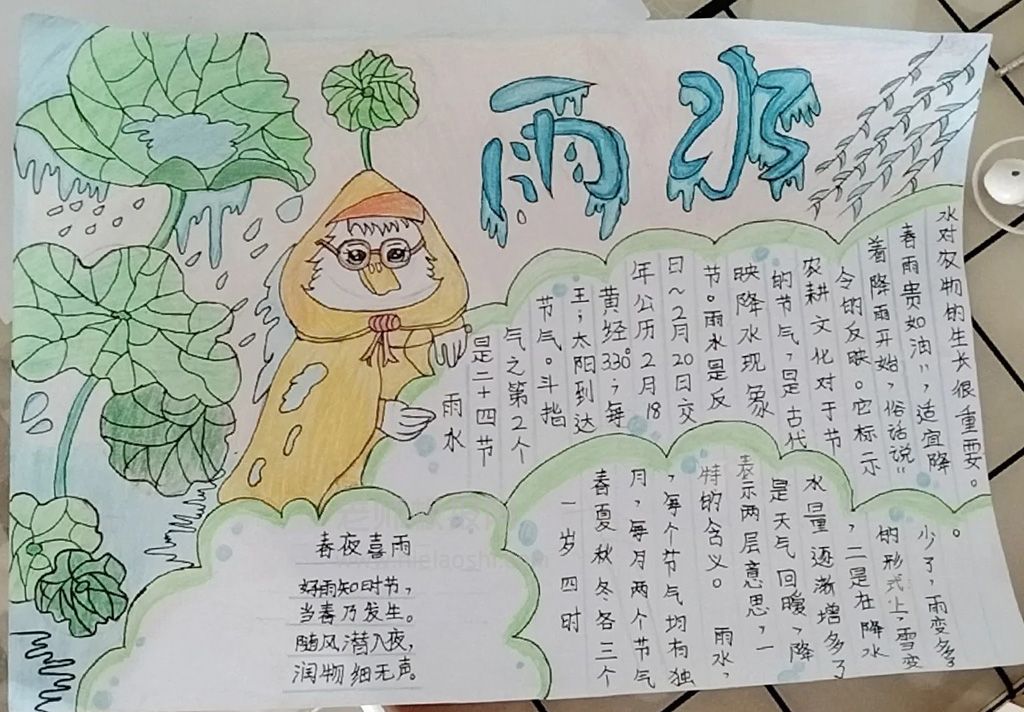 雨水
雨水
是二十四节
气之第2个
节气。斗指
王；太阳到达
黄经330°；每
年公历2月18
日～2月20日交
节。雨水是反
映降水现象
的节气，是古代
农耕文化对于节
令的反映。它标示
着降雨开始，俗话说"
春雨贵如油"，适宜降
水对农物的生长很重要。
一岁四时
春夏秋冬各三个
月，每月两个节气
，每个节气均有独
特的含义。雨水，
表示两层意思，一
是天气回暖，降
水量逐渐增多了
，二是在降水
的形式上，雪变
少了，雨变多了
。
春夜喜雨
好雨知时节，
当春乃发生。
随风潜入夜，
润物细无声。